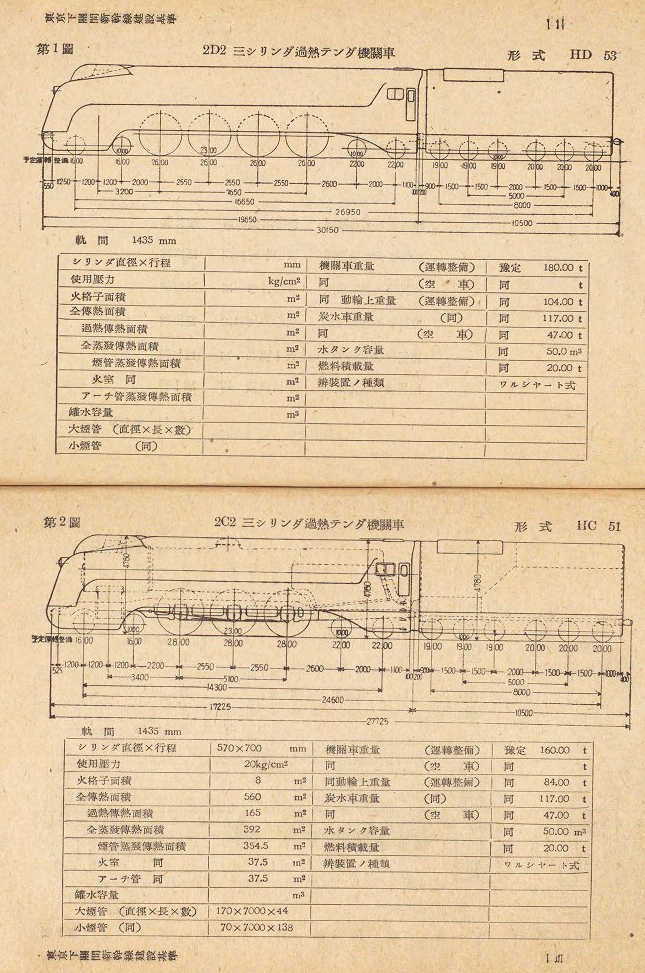 東京下關間新幹線建設基準
第1圖 2D2 三シリンダ過熱テンダ機關車 形式 HD 53
予定運轉整備
1600 1000 1600 2600 2300 2600 2600 2600 1000 2200 2200 1900 1900 1000 1900 2000 2000 2000
550 1250 1200 1200 2000 2550 2550 2550 2600 2000 1100 900 1500 1500 2000 1500 1500 1000 400
3200 7650 5000
16650 8000
26950
19650 10500
30150
軌間 1435 mm
シリンダ直徑×行程 mm 機關車重量 (運轉整備) 豫定 180.00 t
使用壓力 kg/cm² 同 (空車) 同 t
火格子面積 m² 同 動輪上重量 (運轉整備) 同 104.00 t
全傳熱面積 m² 炭水車重量 (同) 同 117.00 t
過熱傳熱面積 m² 同 (空車) 同 47.00 t
全蒸發傳熱面積 m² 水タンク容量 同 50.0 m³
煙管蒸發傳熱面積 m² 燃料積載量 同 20.00 t
火室 同 m² 辨裝置ノ種類 ワルシャート式
アーチ管蒸發傳熱面積 m²
罐水容量 m³
大煙管 (直徑×長×數)
小煙管 (同)
第2圖 2C2 三シリンダ過熱テンダ機關車 形式 HC 51
4780 4780 4780
予定運轉整備
1600 1000 1600 2800 2300 2800 2800 1000 2200 2200 1900 1000 1900 1900 2000 2000 2000
525 1200 1200 1200 2200 2550 2550 2600 2000 1100 1500 1500 2000 1500 1500 1000 400
3400 5100 5000
14300 8000
24600
17225 10500
27725
軌間 1435 mm
シリンダ直徑×行程 570×700 mm 機關車重量 (運轉整備) 豫定 160.00 t
使用壓力 20kg/cm² 同 (空車) 同 t
火格子面積 8 m² 同動輪上重量 (運轉整備) 同 84.00 t
全傳熱面積 560 m² 炭水車重量 (同) 同 117.00 t
過熱傳熱面積 165 m² 同 (空車) 同 47.00 t
全蒸發傳熱面積 392 m² 水タンク容量 同 50.00 m³
煙管蒸發傳熱面積 354.5 m² 燃料積載量 同 20.00 t
火室 同 37.5 m² 辨裝置ノ種類 ワルシャート式
アーチ管 同 37.5 m²
罐水容量 m³
大煙管 (直徑×長×數) 170×7000×44
小煙管 (同) 70×7000×138
東京下關間新幹線建設基準